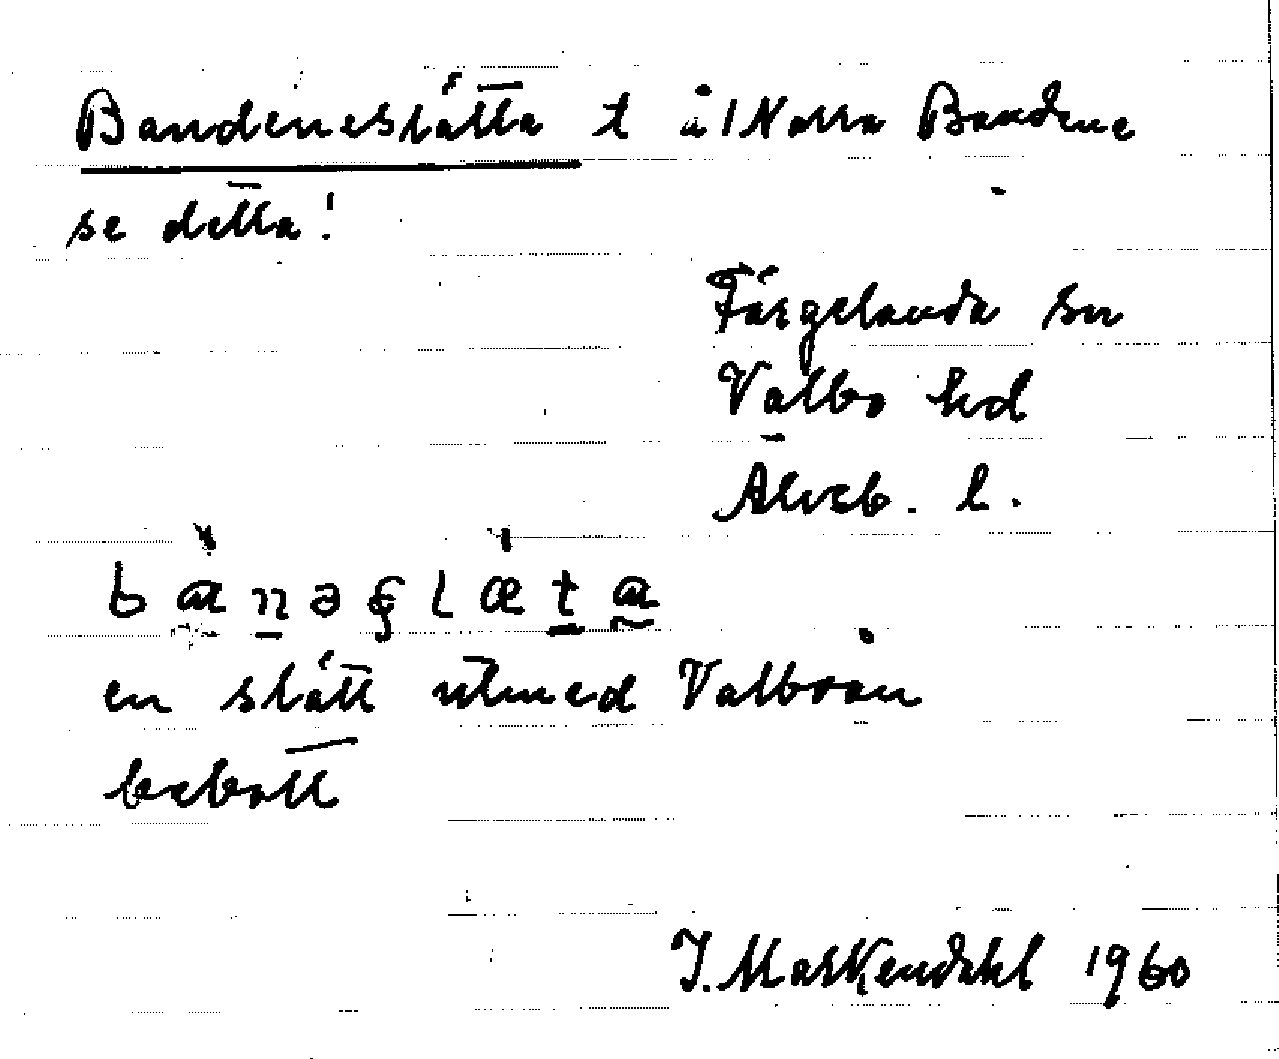 Bandeneslätta t å 1 Norra Bandene
se detta!
Färgelanda sn
Valbo hd
Älvsb. l.
en slätt utmed Valboån
bebott
J. Markendahl 1960